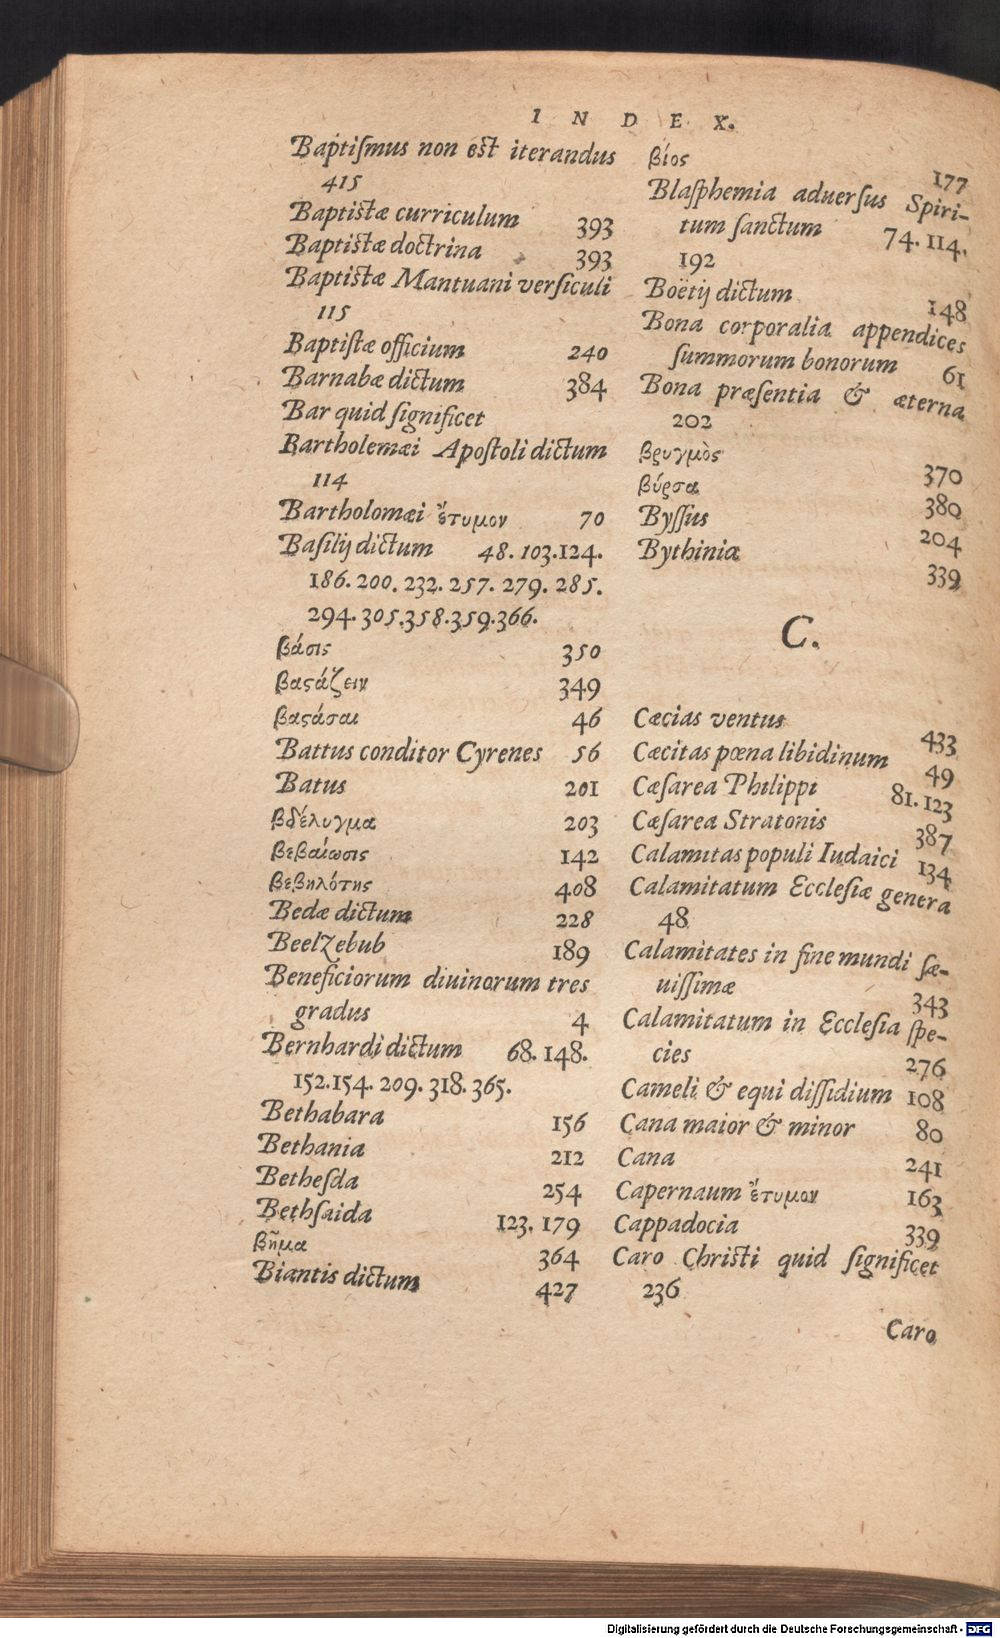 INDEX.
Baptiſmus non est iterandus
415
Baptistæ curriculum 393
Baptistæ doctrina 393
Baptistæ Mantuani verſiculi
115
Baptiſtæ officium 240
Barnabæ dictum 384
Bar quid ſignificet
Bartholemæi Apoſtoli dictum
114
Bartholomæi ἔτυμον 70
Baſilij dictum 48. 103. 124.
186. 200. 232. 257. 279. 285.
294. 305. 358. 359. 366.
βάσις 350
βαϛάζειν 349
βαϛάσαι 46
Battus conditor Cyrenes 56
Batus 201
βδέλυγμα 203
βεβαίωσις 142
βεβηλότης 408
Bedæ dictum 228
Beelzebub 189
Beneficiorum diuinorum tres
gradus 4
Bernhardi dictum 68. 148.
152. 154. 209. 318. 365.
Bethabara 156
Bethania 212
Betheſda 254
Bethſaida 123. 179
βῆμα 364
Biantis dictum 427
βίος 177
Blaſphemia aduerſus Spiri-
tum ſanctum 74. 114.
192
Boëtij dictum 148
Bona corporalia appendices
ſummorum bonorum 61
Bona præſentia & æterna
202
βρυγμὸς 370
βύρσα 380
Byſſus 204
Bythinia 339
C.
Cæcias ventus 433
Cæcitas pœna libidinum 49
Cæſarea Philippi 81. 123
Cæſarea Stratonis 387
Calamitas populi Iudaici 134
Calamitatum Eccleſiæ genera
48
Calamitates in fine mundi ſæ-
uiſſimæ 343
Calamitatum in Eccleſia ſpe-
cies 276
Cameli & equi diſſidium 108
Cana maior & minor 80
Cana 241
Capernaum ἔτυμον 163
Cappadocia 339
Caro Christi quid ſignificet
236
Caro
Digitalisierung gefördert durch die Deutsche Forschungsgemeinschaft - DFG